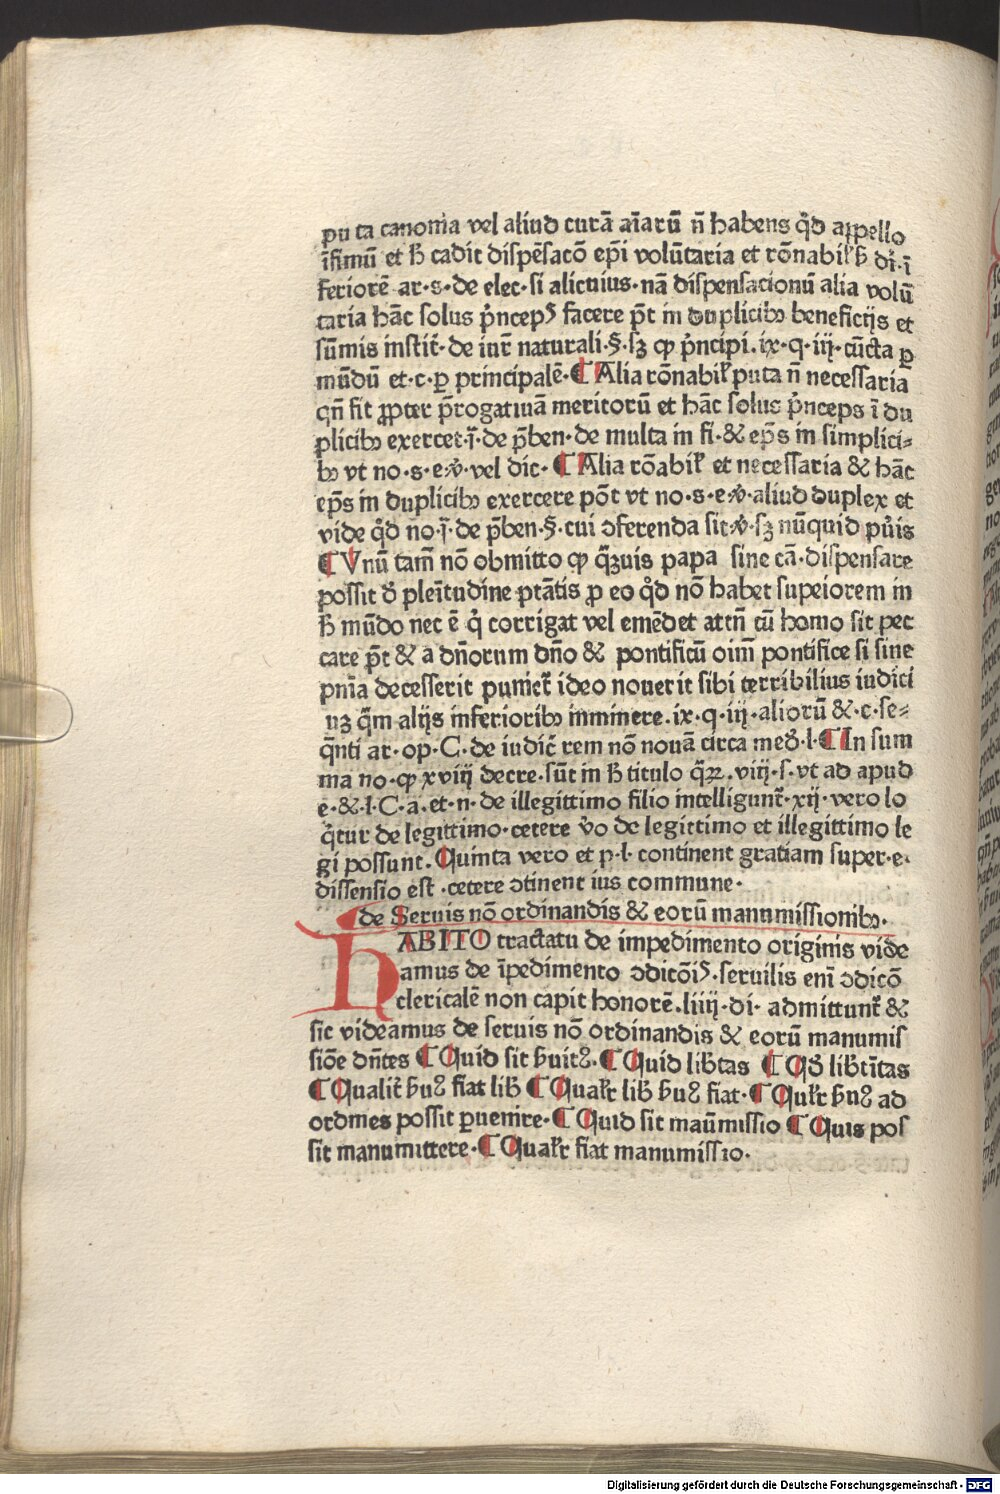 pu ta canonia vel aliud curā aīarū n̄ habens qd̛ appello
īfimū et ħ cadit dispēsacō epi̅ volūtaria et rōnabil̛ ħ dr̄. ī
feriorē ar·s·de elec·si alicuius·nā dispensacionū alia volū
taria hāc solus p̛ncepꝰ facere pt̄ in duplicibꝫ beneficijs et
sūmis instit̛·de iur̄ naturali·§·sꝫ ꝙ p̛ncipi.ix·q·iij·cūcta ꝑ
mūdū et·c·ꝑ principalē·¶ Alia rōnabil̛ puta n̄ necessaria
qn̄ fit ꝓpter p̄rogatiuā meritorū et hāc solus p̛nceps ī du
plicibꝫ exercet·j̄·de p̄ben·de multa in fi·& ep̄s in simplici⸗
bꝫ vt no·s·e·ꝟ·vel dic·¶ Alia rōabil̛ et necessaria & hāc
ep̄s in duplicibꝫ exercere pōt vt no·s·e·ꝟ·aliud duplex et
vide qd̛ no·j̄·de p̄ben·§·cui ɔferenda sit·ꝟ·sꝫ nūquid pưis
¶ Vnū tam̄ nō obmitto ꝙ q̄ꝫuis papa sine cā·dispensare
possit d̛ plenītudine ptātis ꝑ eo qd̛ nō habet supeiorem in
ħ mūdo nec ē q̛ corrigat vel emēdet attn̄ cū homo sit pec
care pt̄ & a dn̄orum dn̄o & pontificū oim̄ pontifice si sine
pnīa decesserit puniet̛ ideo nouerit sibi terribilius iudici
uꝫ q̄m alijs inferioribꝫ inminere.ix·q·iij·aliorū &·c·se⸗
q̄nti ar·op·C·de iudic̄ rem nō nouā circa med̛·l·¶ In sum
ma no·ꝙ xviij decre·sūt in ħ titulo q̄ꝝ.viij·s·vt ad apud
e·&·l·C·a·et·n·de illegittimo filio intelligunt̛·xij·vero lo
q̛tur de legittimo·cetere v̛o de legittimo et illegittimo le
gi possunt. Quinta vero et p·l·continent gratiam super·e·
dissensio est·cetere ɔtinent ius commune·
de Seruis nō ordinandis & eorū manumissionibꝫ·
HABITO tractatu de impedimento originis vide
amus de īpedimento ɔdicōiꝰ·seruilis enī ɔdicō
clericalē non capit honorē.liiij·di· admittunt̛ &
sic videamus de seruis nō ordinandis & eorū manumis
siōe dn̄tes ¶ Quid sit ħuitꝰ·¶ Quid lib̄tas ¶ Qd̛ lib̄tītas
¶ Qualit̛ ħuꝰ fiat lib̄ ¶ Qual̛r lib̄ ħuꝰ fiat·¶ Qul̛r ħuꝰ ad
ordines possit ꝑuenire·¶ Quid sit manūmissio ¶ Quis pos
sit manumittere·¶ Qual̛r fiat manumissio·
Digitalisierung gefördert durch die Deutsche Forschungsgemeinschaft - DFG